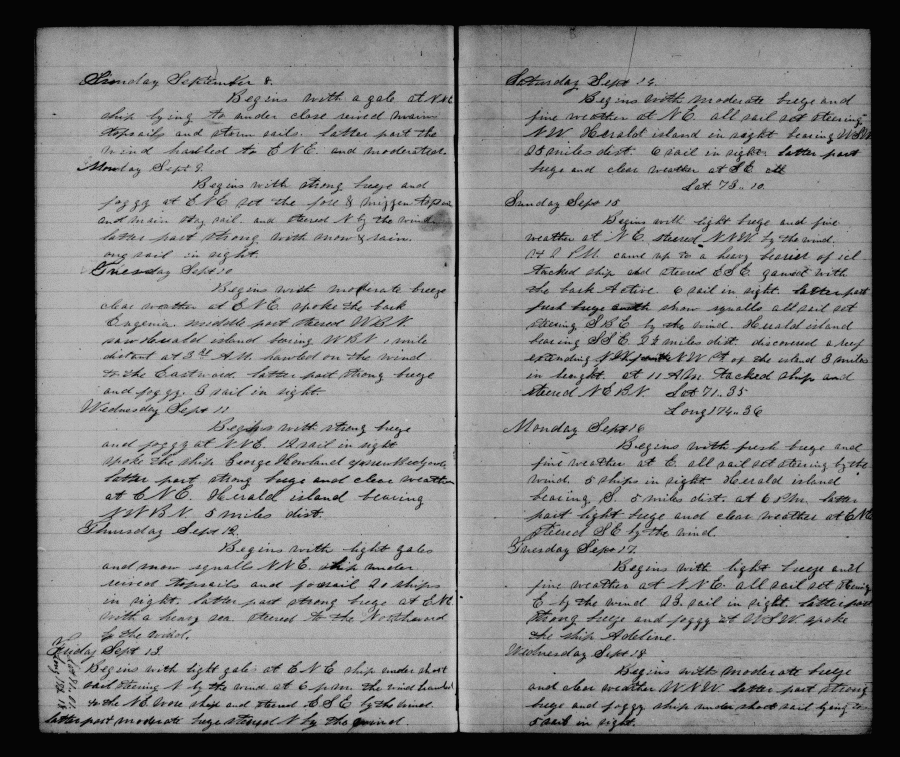 Sunday September 8.
Begins with a gale at NNE
ship lying to under close reived main
topsail and storm sails. latter part the
wind hauled to ENE. and moderated.
Monday Sept 9.
Begins with strong breze and
foggy at ENE set the fore & mizzen topsail
and main stay sail. and stered N by the wind
latter part strong with snow & rain.
one sail in sight.
Tuesday Sept 10
Begins with moderate breeze
clear weather at ENE. spoke the bark
Eugenia. middle part stered WBN.
saw Herald island bearing WBN. mile
distant at 3 rd A.M. hawled on the wind
to the Eastward. latter part strong breze
and foggy. 3 sail in sight.
Wednesday Sept 11
Begins with strong breze
and foggy at NNE. 12 sail in sight
spoke the ship George Howland
latter part strong breze and clear weather
at ENE. Herald island bearing
NWBN. 5 miles dist.
Thursday Sept 12.
Begins with light gales
and snow squalls NNE. ship under
reived topsails and foresail 20 ships
in sight. latter part strong breze at ENE
with a heavy sea. stered to the Northward
by the wind.
Friday Sept 13.
Begins with light gales at ENE ship under short
sail stering N by the wind at 6 p.m. the wind hauled
to the NE wore ship and stered ESE by the wind.
latter part moderate breze stered N by the wind.
Saturday Sept 14.
Begins with moderate breze and
fine weather at NE. all sail set steering
NW. Herald island in sight bearing WSW
25 miles dist. 6 sail in sight. latter part
breze and clear weather at SE.
Lat 73..10.
Sunday Sept 15
Begins with light breze and fine
weather at NE. steered NNW. by the wind.
At 2 P.M. came up to a heavy bearier of ice
tacked ship and steered ESE. gamed with
the bark Active. 6 sail in sight. latter part
fresh breze with snow squalls all sail set
steering SBE by the wind. Herald island
bearing SSE 25 miles dist. discovered a reef
extending NW Pt of the island 3 miles
in lenght. at 11 A.M. tacked ship and
steered NEBN. Lat 71..35
Long 174..36
Monday Sept 16
Begins with fresh breze and
fine weather. at E. all sail set steering by the
wind. 5 ships in sight. Herald island
bearing S. 5 miles dist. at 6 P.M. latter
part light breze and clear weather at ENE
steered SE by the wind.
Tuesday Sept 17.
Begins with light breeze and
fine weather at NNE. all sail set stering
E by the wind 23. sail in sight. latter part
strong breeze and foggy at WSW. spoke
the ship Adeline.
Wednesday Sept 18
Begins with moderate breeze
and clear weather WNW. latter part strong
breze and foggy ship under short sail lying to
5 sail in sight.